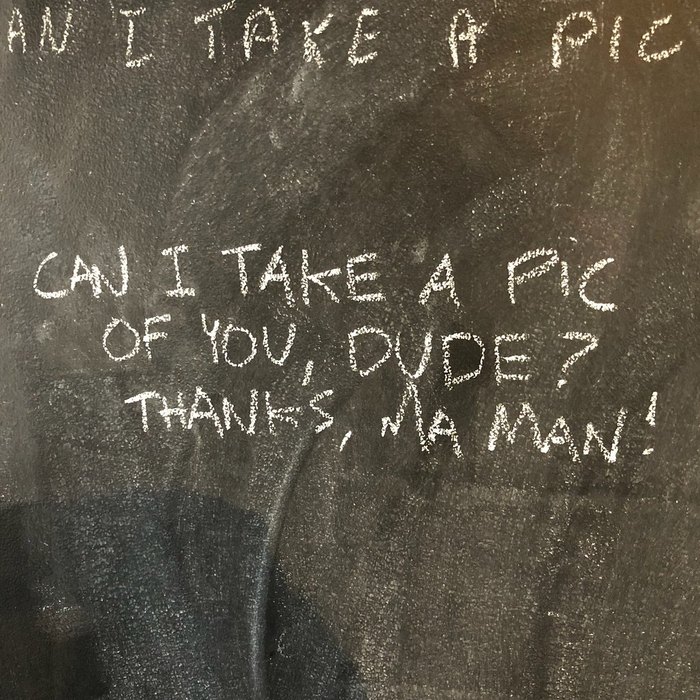 AN I TAKE A PIC
CAN I TAKE A PIC
OF YOU, DUDE?
THANKS, MA MAN!